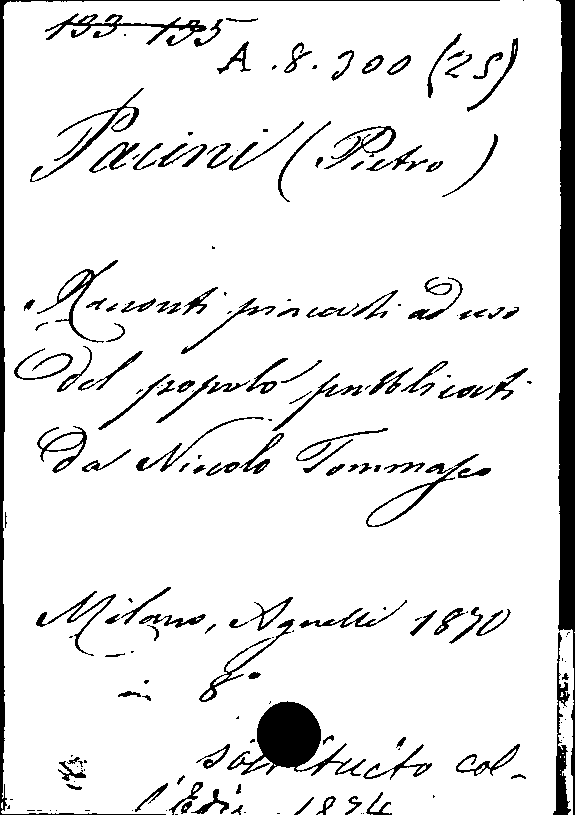 133. 135
A.8.300 (25)
Pacini (Pietro)
Racconti piacevoli ad uso
del popolo pubblicati
da Niccolo Tommaseo
Milano, Agnelli 1870
in 8°
sostituito col-
l'Ediz. 1874